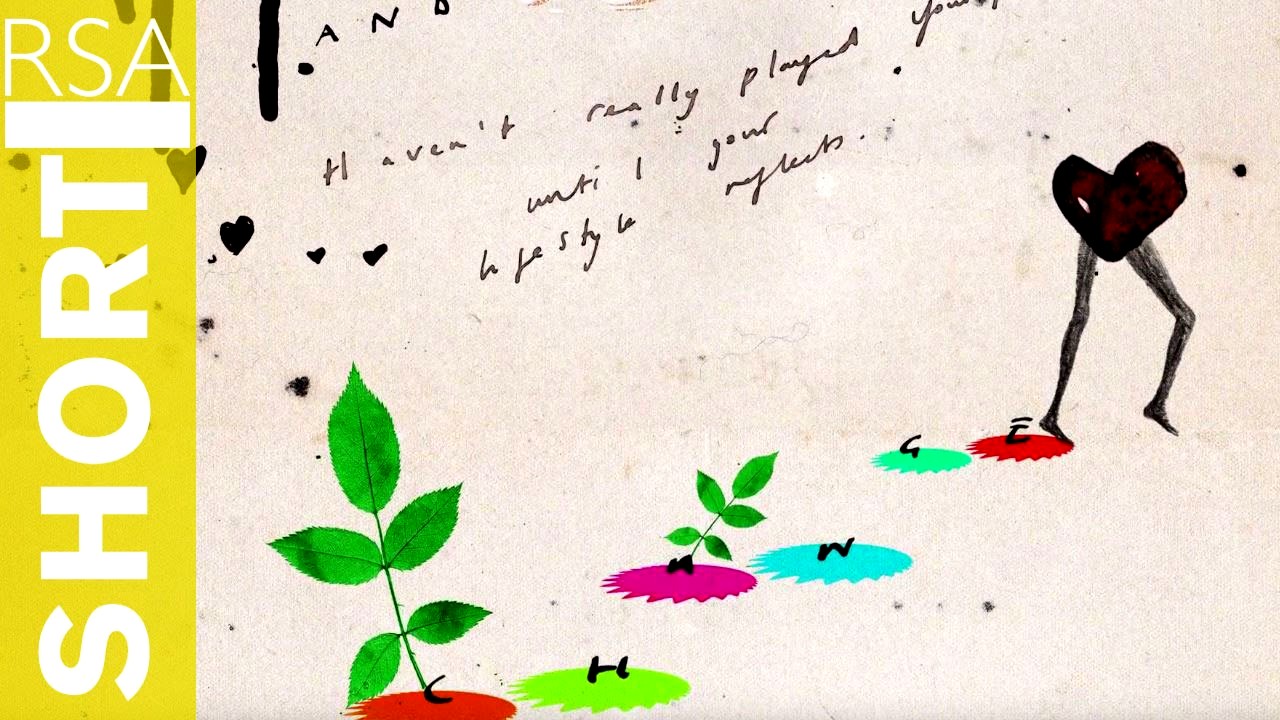 RSA
SHORT
AND
Haven't really played your
until your
lifestyle reflects.
C H A N G E